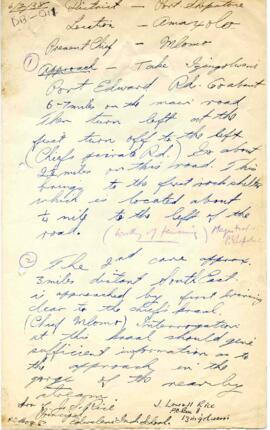 District - Port Shepstone
Location - Amazolo
Present Chief - Mlomo
① Approach - Take Izingolweni
Port Edward Rd. for about
6-7 miles on the main road
Then turn left at the
first turn off to the left
(Chiefs private Rd.) for about
miles on this road. This
brings to the first rock shelter
which is located about
¼ mile to the left of the
road.
② The 2nd cave approx.
3 miles distant South East
is approached by first driving
clear to the chiefs kraal.
(Chief Mlomo) Interrogation
at this kraal should give
sufficient information as to
the approach in the
gorge of the nearby
stream
J. Lowell Rice
PO Box 8
Izingolweni